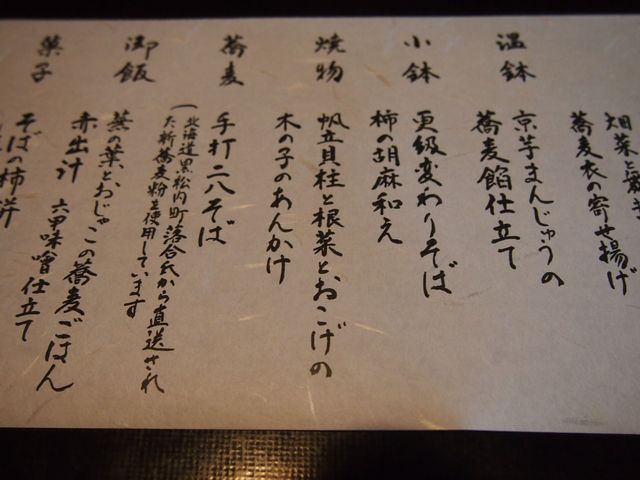 畑菜と
蕎麦衣の寄せ揚げ
温鉢
京芋まんじゅうの
蕎麦餡仕立て
小鉢
更級変わりそば
柿の胡麻和え
焼物
帆立貝柱と根菜とおこげの
木の子のあんかけ
蕎麦
手打二八そば
(北海道黒松内町落合氏から直送され
た新蕎麦粉を使用しています
御飯
蕪の葉とおじゃこの蕎麦ごはん
赤出汁 六甲味噌仕立て
菓子
そばの柿洋